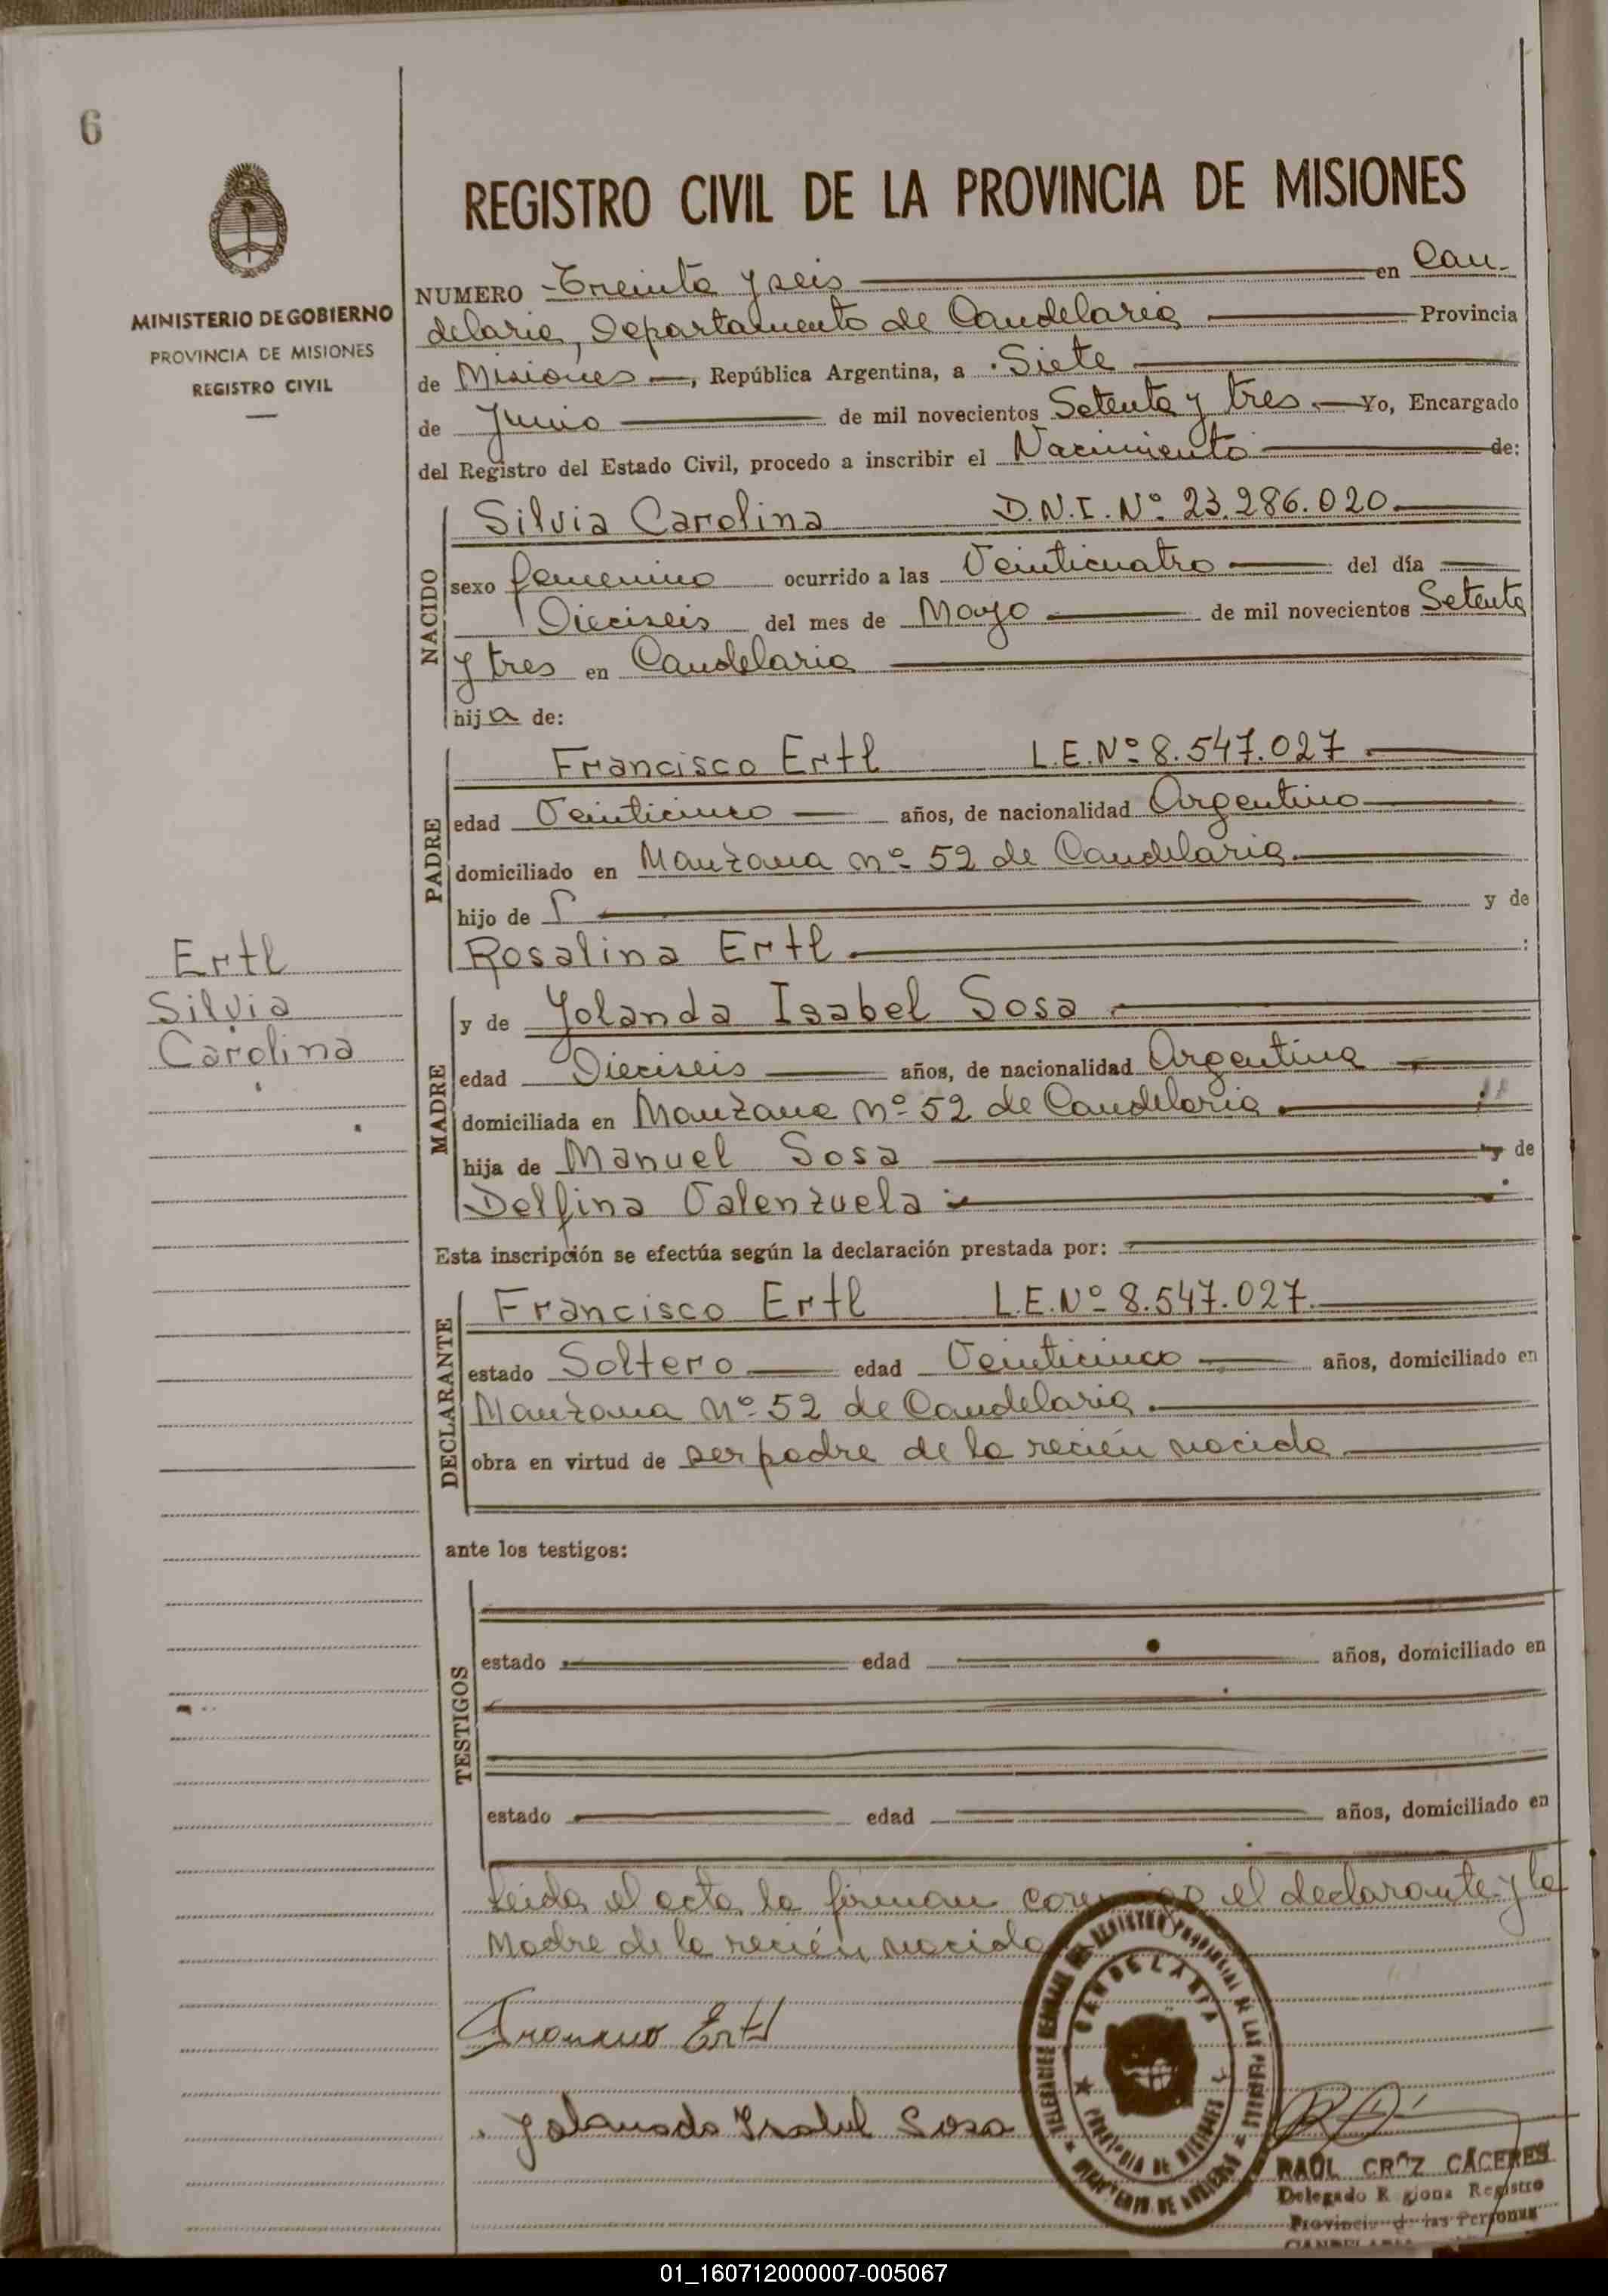 6
REGISTRO CIVIL DE LA PROVINCIA DE MISIONES
MINISTERIO DE GOBIERNO
PROVINCIA DE MISIONES
REGISTRO CIVIL
NUMERO Treinta y seis en Can-
delaria, Departamento de Candelaria Provincia
de Misiones, República Argentina, a Siete
de Junio de mil novecientos Setenta y tres. Yo, Encargado
del Registro del Estado Civil, procedo a inscribir el Nacimiento de:
NACIDO
Silvia Carolina D.N.I. Nº 23.286.020
sexo femenino ocurrido a las Veinticuatro del día
Dieciseis del mes de Mayo de mil novecientos Setenta
y tres en Candelaria
hija de:
PADRE
Francisco Ertl L.E.Nº 8.547.027
edad Veinticinco años, de nacionalidad Argentino
domiciliado en Manzana nº 52 de Candelaria.
hijo de y de
Rosalina Ertl
Ertl
Silvia
Carolina
MADRE
y de Yolanda Isabel Sosa
edad Dieciseis años, de nacionalidad Argentina
domiciliada en Manzana nº 52 de Candelaria.
hija de Manuel Sosa y de
Delfina Valenzuela
Esta inscripción se efectúa según la declaración prestada por:
DECLARANTE
Francisco Ertl L.E.Nº 8.547.027.
estado Soltero edad Veinticinco años, domiciliado en
Manzana Nº 52 de Candelaria.
obra en virtud de ser padre de la recién nacida
ante los testigos:
TESTIGOS
estado edad años, domiciliado en
estado edad años, domiciliado en
Leida el acta la firman conmigo el declarante y la
Madre de la recién nacida
Francisco Ertl
Yolanda Isabel Sosa
CANDELARIA
PROVINCIA DE MISIONES
MINISTERIO DE GOBIERNO
RAUL CRUZ CACERES
Delegado Registro
de las Personas
CANDELARIA
01_160712000007-005067